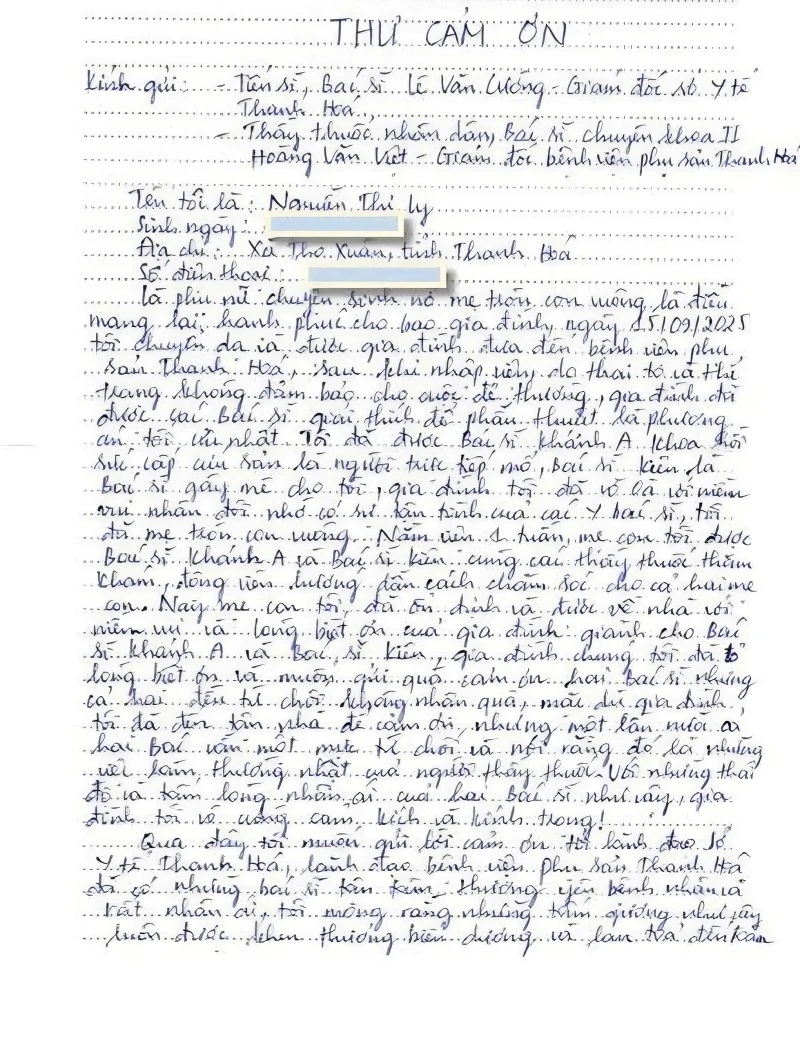 THƯ CẢM ƠN
Kính gửi: - Tiến sĩ, Bác sĩ Lê Văn Cường - Giám đốc sở Y tế
Thanh Hoá,
- Thầy thuốc nhân dân, Bác sĩ chuyên khoa II
Hoàng Văn Việt - Giám đốc bệnh viện phụ sản Thanh Hoá
Tên tôi là: Nguyễn Thị Ly
Sinh ngày:
Địa chỉ: Xã Thọ Xuân, tỉnh Thanh Hoá
Số điện thoại:
Là phụ nữ chuyện sinh nở mẹ tròn con vuông là điều
mang lại hạnh phúc cho bao gia đình, ngày 15/09/2025
tôi chuyển dạ và được gia đình đưa đến bệnh viện phụ
sản Thanh Hoá, sau khi nhập viện, do thai to và thể
trạng không đảm bảo cho cuộc đẻ thường, gia đình đã
được các Bác sĩ giải thích để phẫu thuật là phương
án tối ưu nhất. Tôi đã được Bác sĩ Khánh A khoa hồi
sức cấp cứu sản là người trực tiếp mổ, Bác sĩ Kiên là
Bác sĩ gây mê cho tôi, gia đình tôi đã vỡ oà với niềm
vui nhân đôi nhờ có sự tận tình của các Y bác sĩ, tôi
đã mẹ tròn con vuông. Nằm viện 1 tuần, mẹ con tôi được
Bác sĩ Khánh A và Bác sĩ Kiên cùng các thầy thuốc thăm
khám, động viên hướng dẫn cách chăm sóc cho cả hai mẹ
con. Nay mẹ con tôi, đã ổn định và được về nhà với
niềm vui và lòng biết ơn của gia đình giành cho Bác
sĩ Khánh A và Bác sĩ Kiên, gia đình chúng tôi đã tỏ
lòng biết ơn và muốn gửi quà cảm ơn hai Bác sĩ nhưng
cả hai đều từ chối không nhận quà, mặc dù gia đình
tôi đã đến tận nhà để cảm ơn, nhưng một lần nữa cả
hai Bác vẫn một mực từ chối và nói rằng đó là những
việc làm thường nhật của người thầy thuốc. Với những thái
độ và tấm lòng nhân ái của hai Bác sĩ như vậy, gia
đình tôi vô cùng cảm kích và kính trọng!
Qua đây tôi muốn gửi lời cảm ơn tới lãnh đạo Sở
Y tế Thanh Hoá, lãnh đạo bệnh viện Phụ Sản Thanh Hoá
đã có những bác sĩ tận tâm, thương yêu bệnh nhân và
rất nhân ái, tôi mong rằng những tấm gương như vậy
luôn được khen thưởng biểu dương và lan toả đến toàn